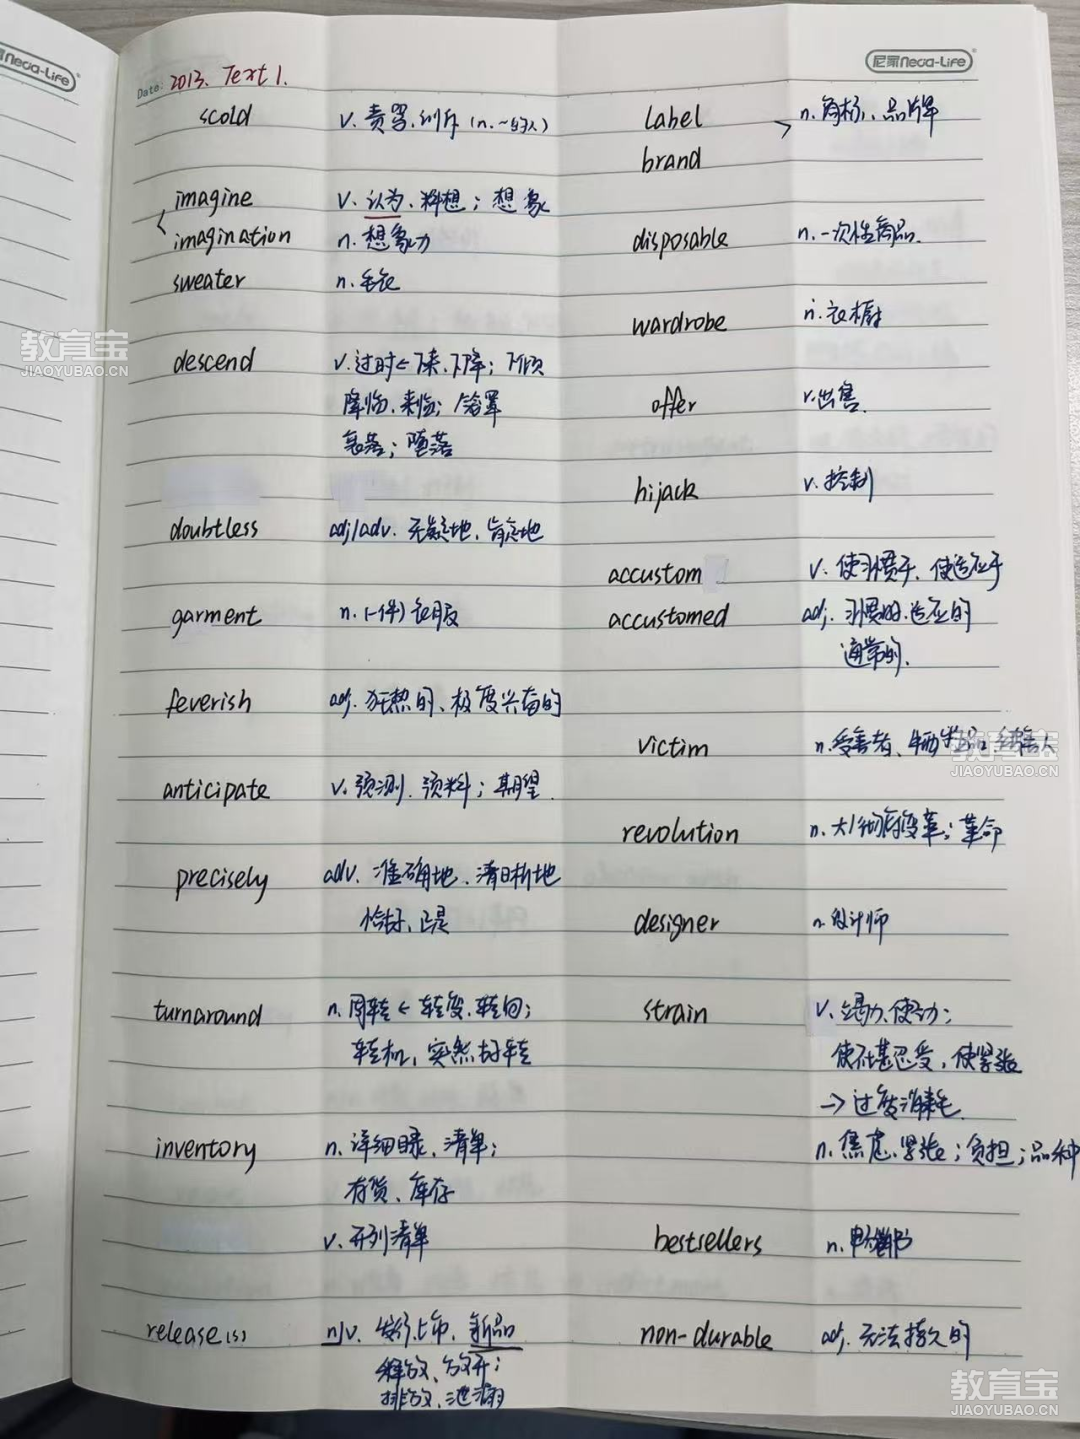 尼家Neda-Life
尼家Neda-Life
Date: 2013. Text 1.
scold v. 责骂、训斥 (n. ~的人)
imagine v. 认为、料想；想象
imagination n. 想象力
sweater n. 毛衣
descend v. 过时← 下来、下降；下倾
降临、来临；
衰落；堕落
doubtless adj/adv. 无疑地、肯定地
garment n. (一件) 衣服
feverish adj. 狂热的、极度兴奋的
anticipate v. 预测、预料；期望
precisely adv. 准确地、清晰地
恰好、正是
turnaround n. 周转 ← 转变、转向；
转机，突然好转
inventory n. 详细目录、清单；
存货、库存
v. 开列清单
release(s) n/v. 发行、上市、新品
释放、放开；
排放、泄漏
label n. 商标、品牌
brand
disposable n. 一次性商品.
wardrobe n. 衣橱
offer v. 出售.
hijack v. 控制
accustom v. 使习惯于、使适应于
accustomed adj. 习惯的、适应的
通常的.
victim n. 受害者、牺牲品、
revolution n. 大变革；革命
designer n. 设计师
strain v. 竭力、使劲；
使不堪忍受，使紧张
→ 过度消耗.
n. 焦虑、紧张；负担；品种
bestsellers n. 畅销书
non-durable adj. 无法持久的
教育宝
JIAOYUBAO.CN
教育宝
JIAOYUBAO.CN
教育宝
JIAOYUBAO.CN